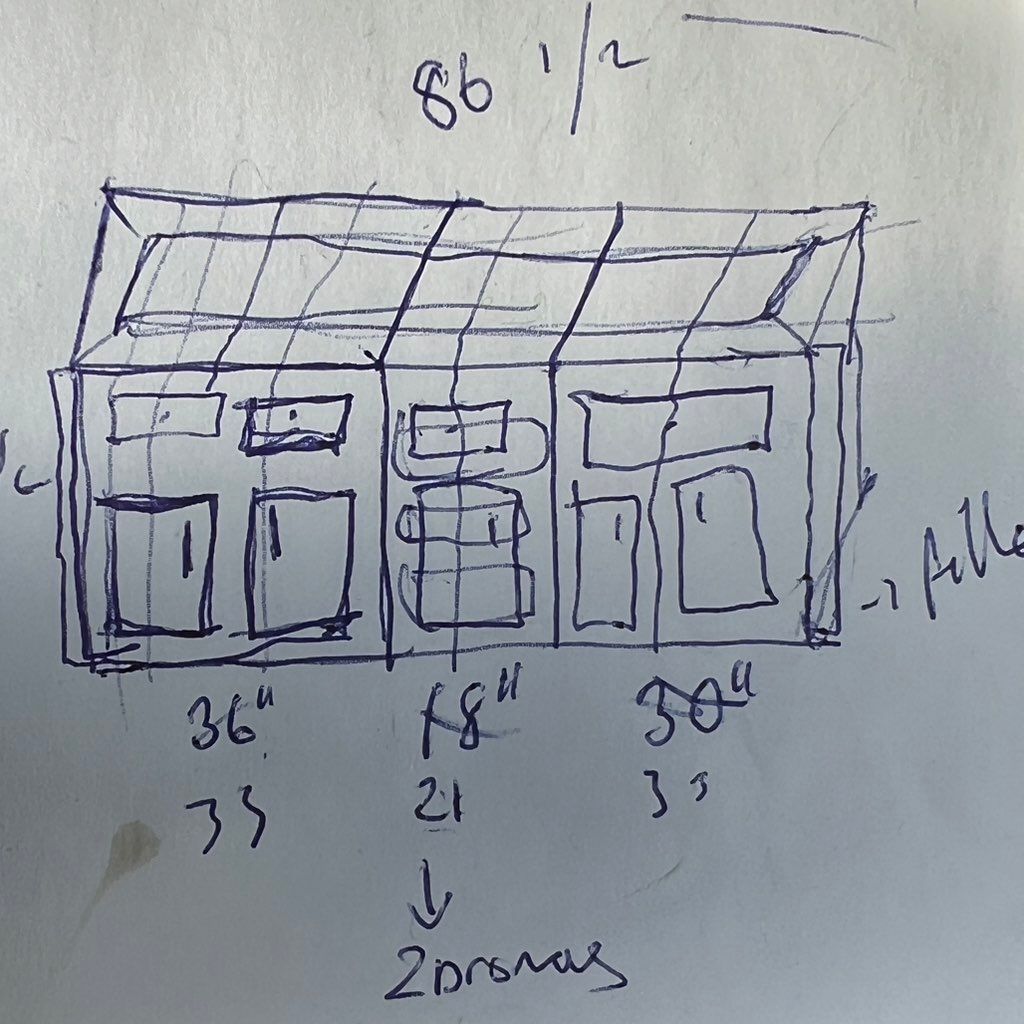 86 1/2
36" 18" 30"
33 21 33
2 Drorwas